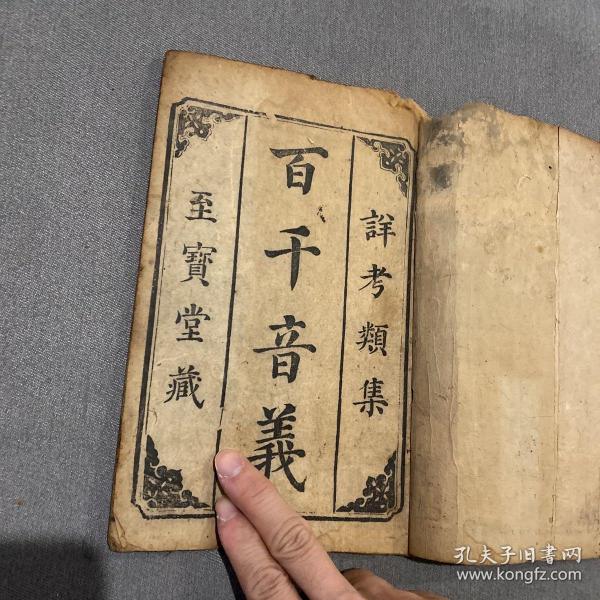 詳考類集
百千音義
至寶堂藏
孔夫子旧書网
www.kongfz.com